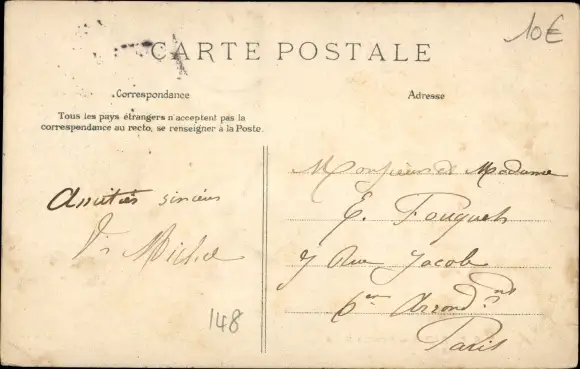 10€
CARTE POSTALE
Correspondance
Adresse
Tous les pays étrangers n'acceptent pas la
correspondance au recto, se renseigner à la Poste.
Amitiés sincères
Michel
148
Monsieur et Madame
E. Fouquet
7 Rue Jacob
6en Arrond.nt
Paris